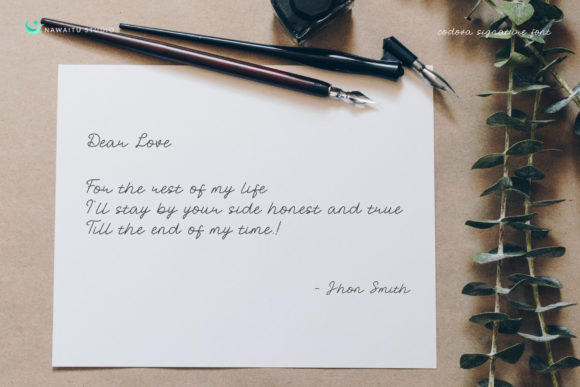 NAWAITU STUDIO
codova signature font
Dear Love
For the rest of my life
I'll stay by your side honest and true
Till the end of my time!
- Jhon Smith